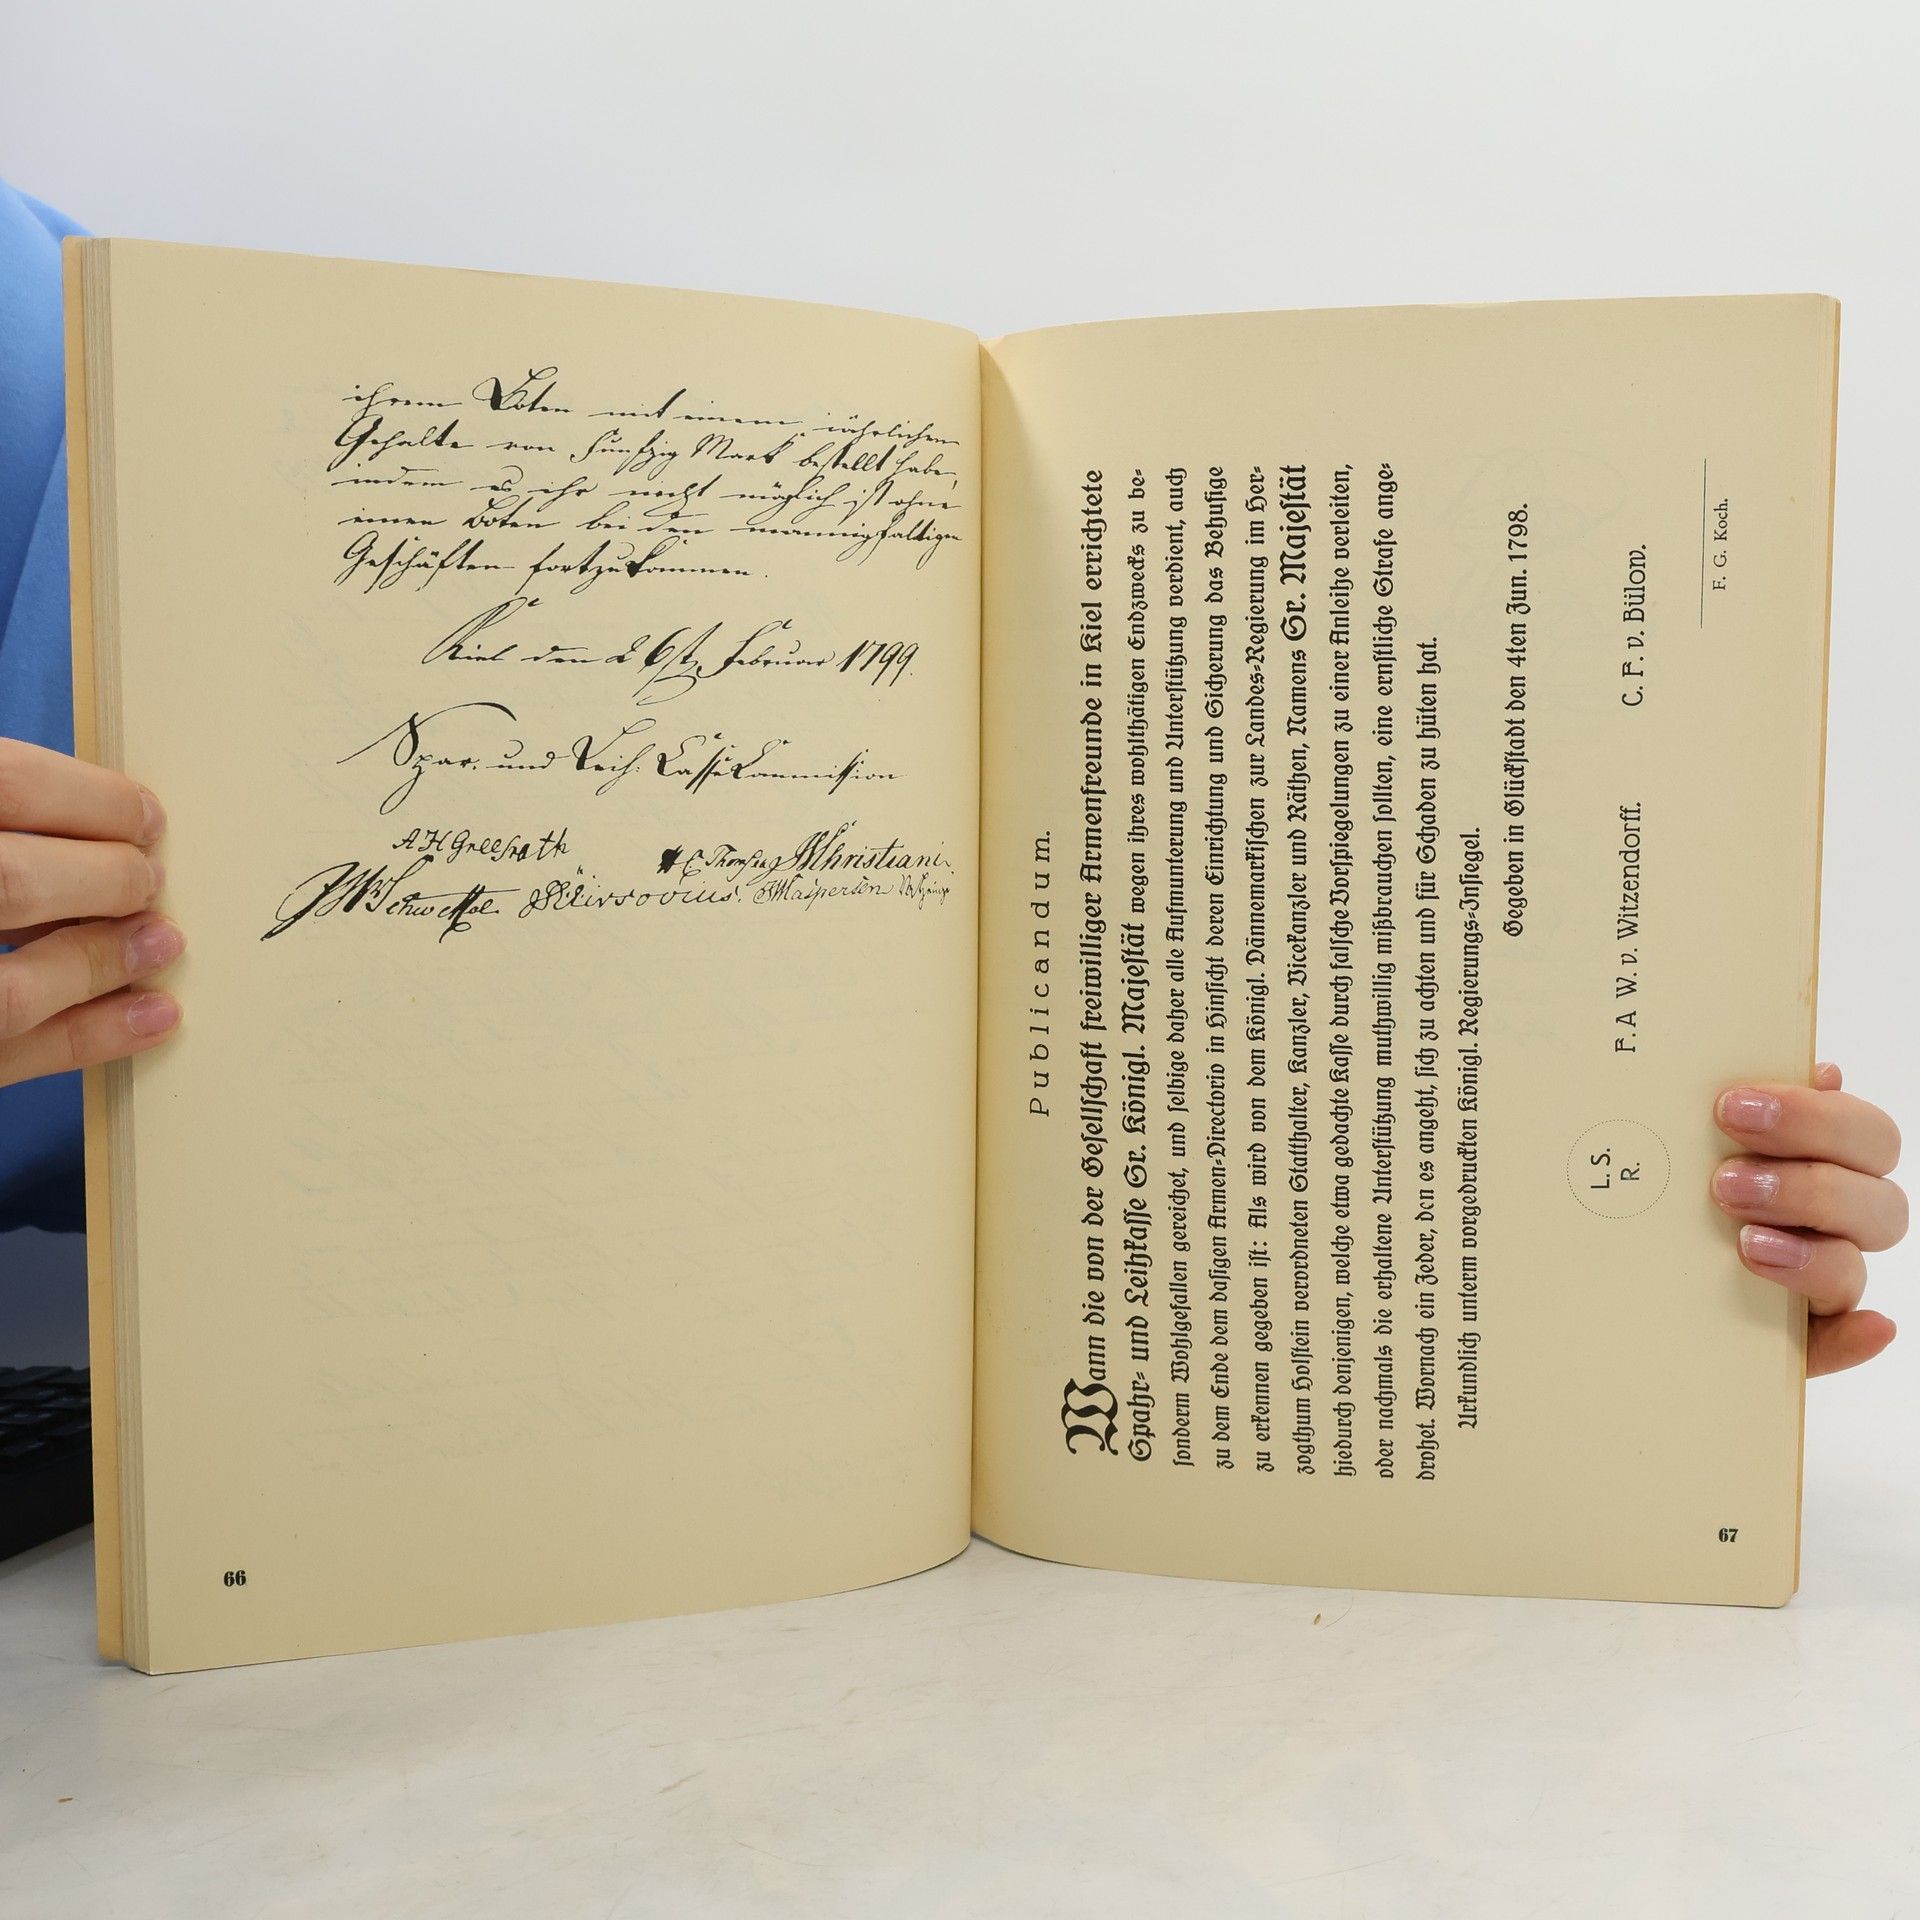 ihrem Boten mit einem jährlichen
Gehalte von funfzig Mark bestellt habe,
indem es ihr nicht möglich ist ohne
einen Boten bei den mannigfaltigen
Geschäften fortzukommen.
Kiel den 26st Februar 1799.
Spar. und Leih: Casse Commission
Christiani
66
Publicandum.
Wann die von der Gesellschaft freiwilliger Armenfreunde in Kiel errichtete
Spahr- und Leihkasse Sr. Königl. Majestät wegen ihres wohlthätigen Endzwecks zu be-
sonderm Wohlgefallen gereichet, und selbige daher alle Aufmunterung und Unterstützung verdient, auch
zu dem Ende dem dasigen Armen-Directorio in Hinsicht deren Einrichtung und Sicherung das Behufige
zu erkennen gegeben ist: Als wird von dem Königl. Dännemarkischen zur Landes-Regierung im Her-
zogthum Holstein verordneten Statthalter, Kanzler, Vicekanzler und Räthen, Namens Sr. Majestät
hiedurch denjenigen, welche etwa gedachte Kasse durch falsche Vorspiegelungen zu einer Anleihe verleiten,
oder nachmals die erhaltene Unterstützung muthwillig mißbrauchen sollten, eine ernstliche Strafe ange-
drohet. Wornach ein Jeder, den es angeht, sich zu achten und für Schaden zu hüten hat.
Urkundlich unterm vorgedruckten Königl. Regierungs-Insiegel.
Gegeben in Glückstadt den 4ten Jun. 1798.
L. S.
R.
F. A W. v. Witzendorff. C. F. v. Bülow.
F. G. Koch.
67